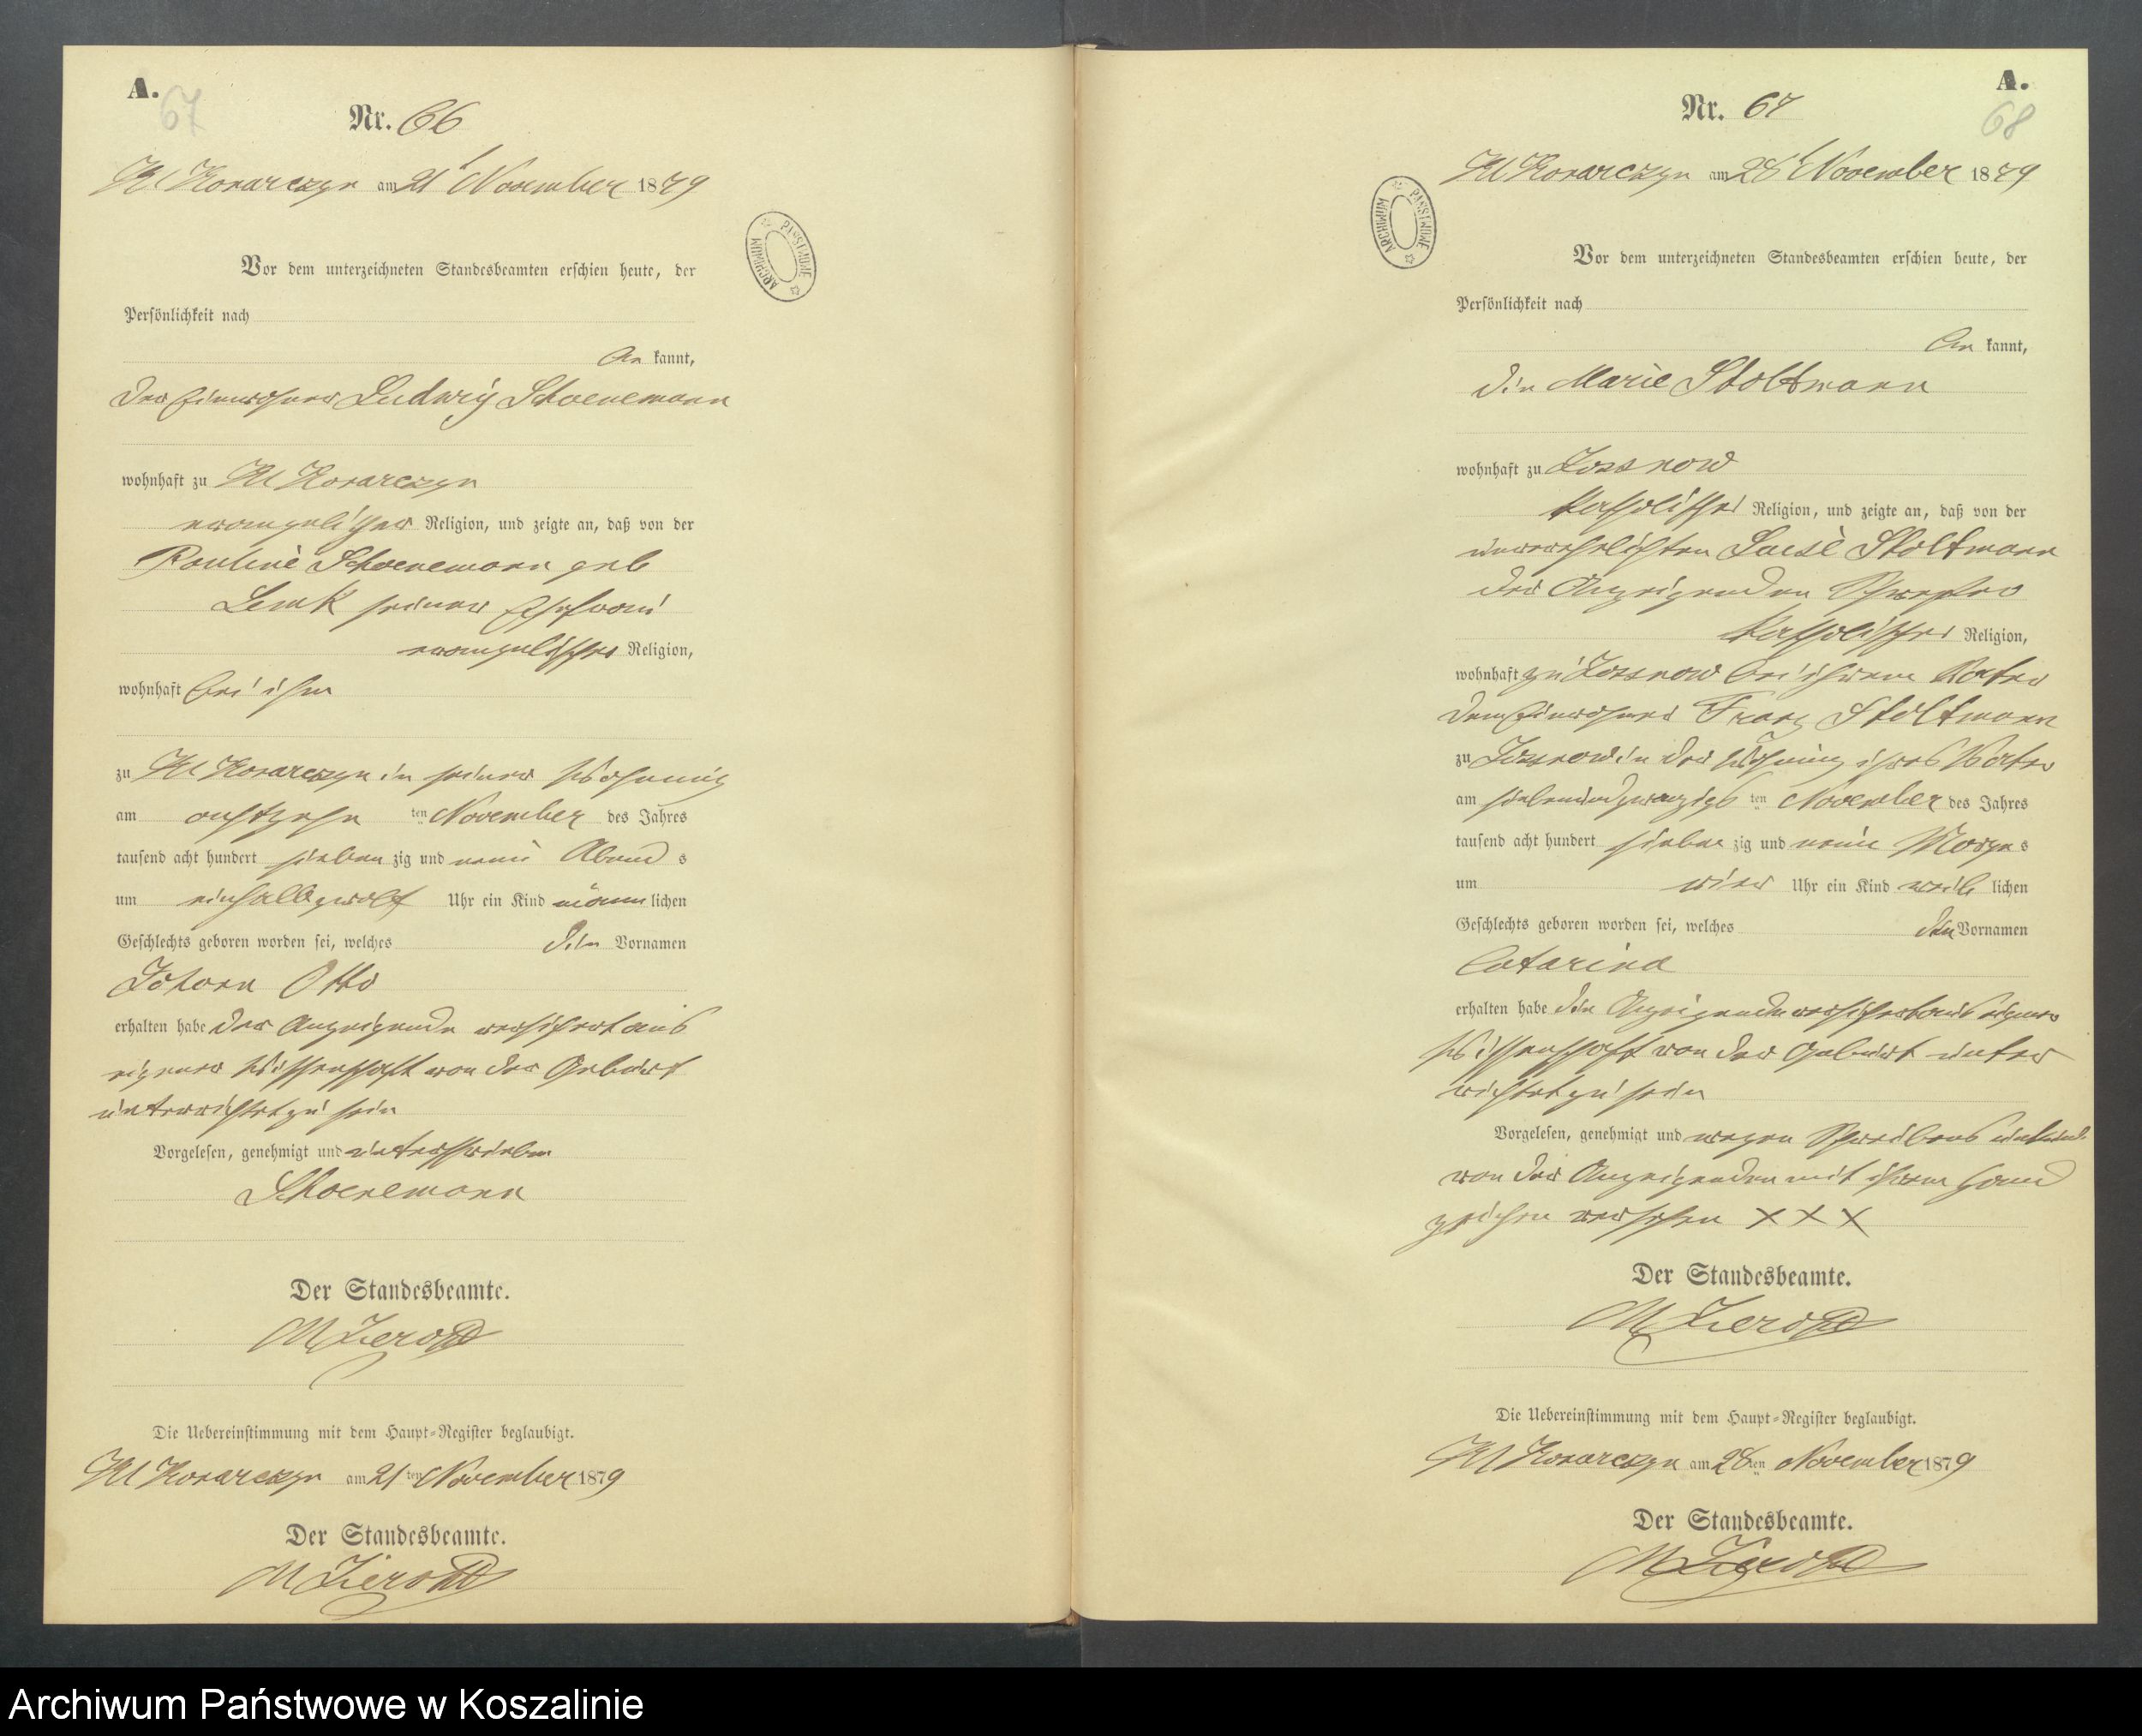 A.
67
Nr. 66
Kl Konarczyn am 21t November 1879
ARCHIWUM PAŃSTWOWE
Vor dem unterzeichneten Standesbeamten erschien heute, der
Persönlichkeit nach
be kannt,
der Einwohner Ludwig Schoenemann
wohnhaft zu Kl Konarczyn
evangelischer Religion, und zeigte an, daß von der
Pauline Schoenemann geb
Lemk seiner Ehefrau
evangelischer Religion,
wohnhaft bei ihm
zu Kl Konarczyn in seiner Wohnung
am achtzehn ten November des Jahres
tausend acht hundert sieben zig und neun Abend s
um einhalbzwölf Uhr ein Kind männ lichen
Geschlechts geboren worden sei, welches die Vornamen
Johann Otto
erhalten habe der Anzeigende versichert aus
eigener Wissenschaft von der Geburt
unterrichtet zu sein
Vorgelesen, genehmigt und unterschrieben
Schoenemann
Der Standesbeamte.
Die Uebereinstimmung mit dem Haupt-Register beglaubigt.
Kl Konarczyn am 21 ten November 1879
Der Standesbeamte.
A.
68
Nr. 67
Kl Konarczyn am 28t November 1879
ARCHIWUM PAŃSTWOWE
Vor dem unterzeichneten Standesbeamten erschien heute, der
Persönlichkeit nach
be kannt,
die Marie Stoltmann
wohnhaft zu Zossnow
katholischer Religion, und zeigte an, daß von der
unverehelichten Luise Stoltmann
der Anzeigenden Schwester
katholischer Religion,
wohnhaft zu Zossnow bei ihrem Vater
dem Einwohner Franz Stoltmann
zu Zossnow in der Wohnung ihres Vater
am siebenundzwanzigs ten November des Jahres
tausend acht hundert sieben zig und neun Morgen s
um vier Uhr ein Kind weib lichen
Geschlechts geboren worden sei, welches den Vornamen
Catarina
erhalten habe die Anzeigende versichert aus eigener
Wissenschaft von der Geburt unter
richtet zu sein
Vorgelesen, genehmigt und wegen Schreibens
von der Anzeigenden mit ihrem Hand
zeichen versehen X X X
Der Standesbeamte.
Die Uebereinstimmung mit dem Haupt-Register beglaubigt.
Kl Konarczyn am 28 ten November 1879
Der Standesbeamte.
Archiwum Państwowe w Koszalinie